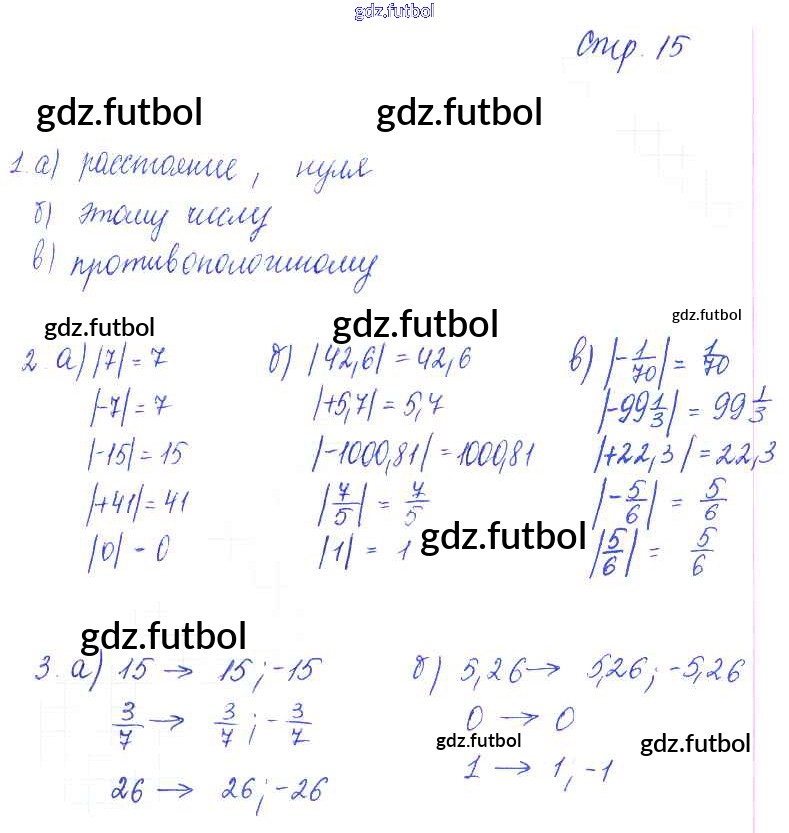 gdz.futbol
Стр. 15
gdz.futbol gdz.futbol
1. а) расстояние, нуля
б) этому числу
в) противоположному
gdz.futbol gdz.futbol gdz.futbol
2. а) |7| = 7 б) |42,6| = 42,6 в) |-1/70| = 1/70
|-7| = 7 |+5,7| = 5,7 |-99 1/3| = 99 1/3
|-15| = 15 |-1000,81| = 1000,81 |+22,3| = 22,3
|+41| = 41 |7/5| = 7/5 |-5/6| = 5/6
|0| - 0 |1| = 1 gdz.futbol |5/6| = 5/6
gdz.futbol
3. а) 15 → 15; -15 б) 5,26 → 5,26; -5,26
3/7 → 3/7; -3/7 0 → 0
gdz.futbol gdz.futbol
26 → 26; -26 1 → 1; -1